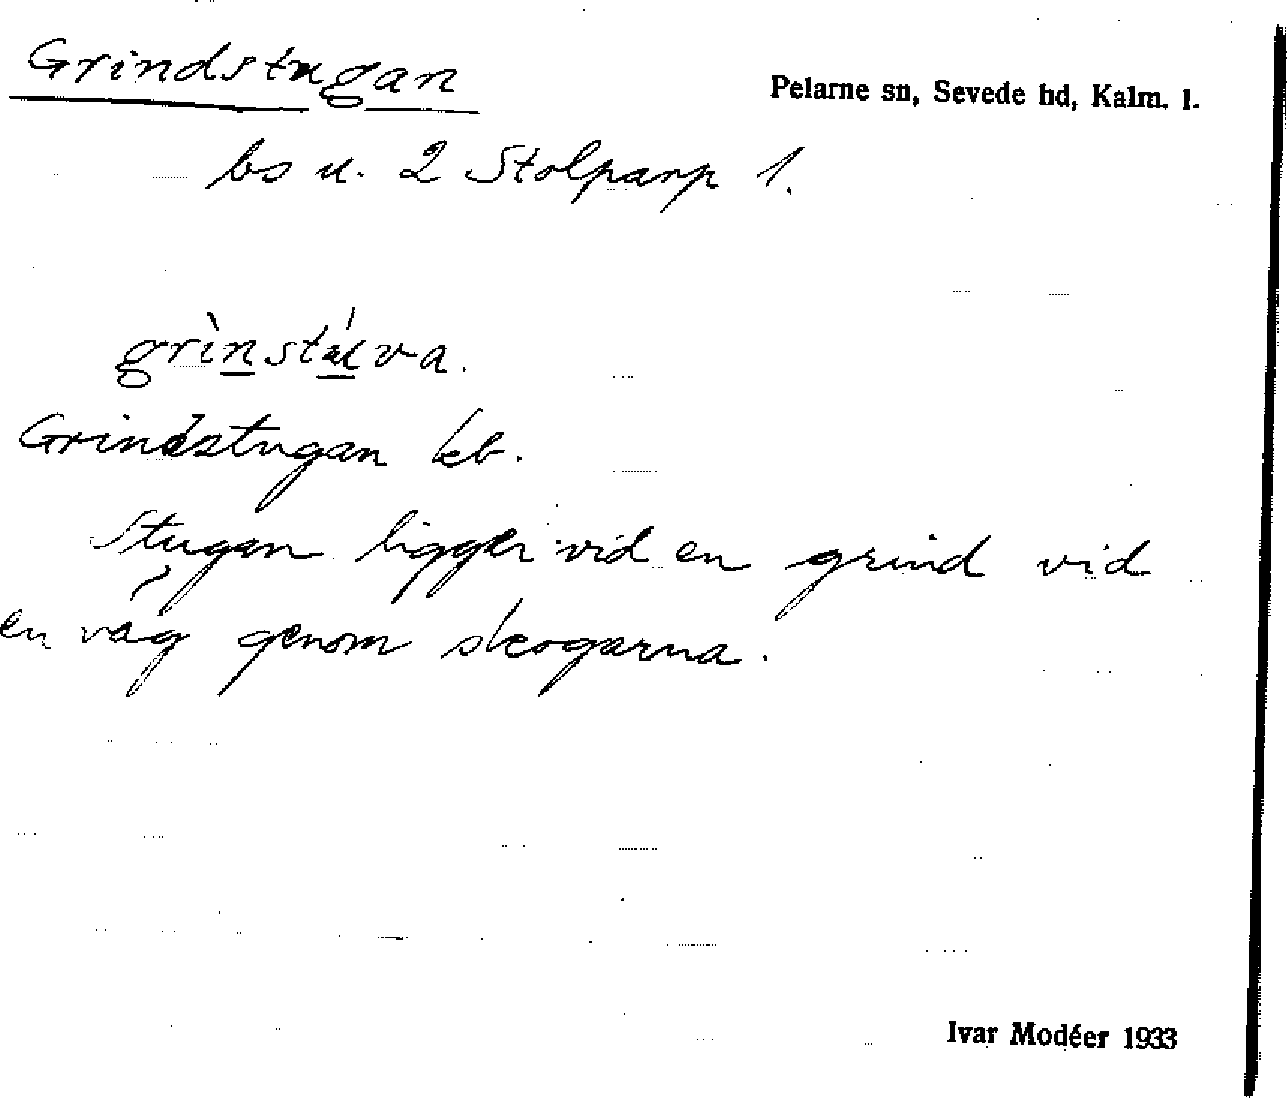 Grindstugan
Pelarne sn, Sevede hd, Kalm. l.
bs u. 2 Stolparp 1.
Grindstugan kb.
Stugan ligger vid en grind vid
en väg genom skogarna.
Ivar Modéer 1933